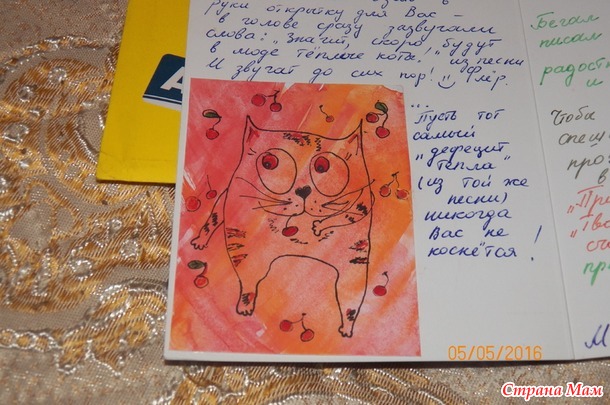 руки открытку для Вас –
в голове сразу зазвучали
слова: "Значит, скоро будут
в моде тёплые коты!" из песни
И звучат до сих пор!
...
Пусть тот
самый
"дефецит
тепла"
(из той же
песни)
никогда
Вас не
коснётся!
Бегал
писал
радост
и
Чтоба
спеш
про
в
"Пр
"Тво
сч
пр
М
A
05/05/2016
Страна Мам